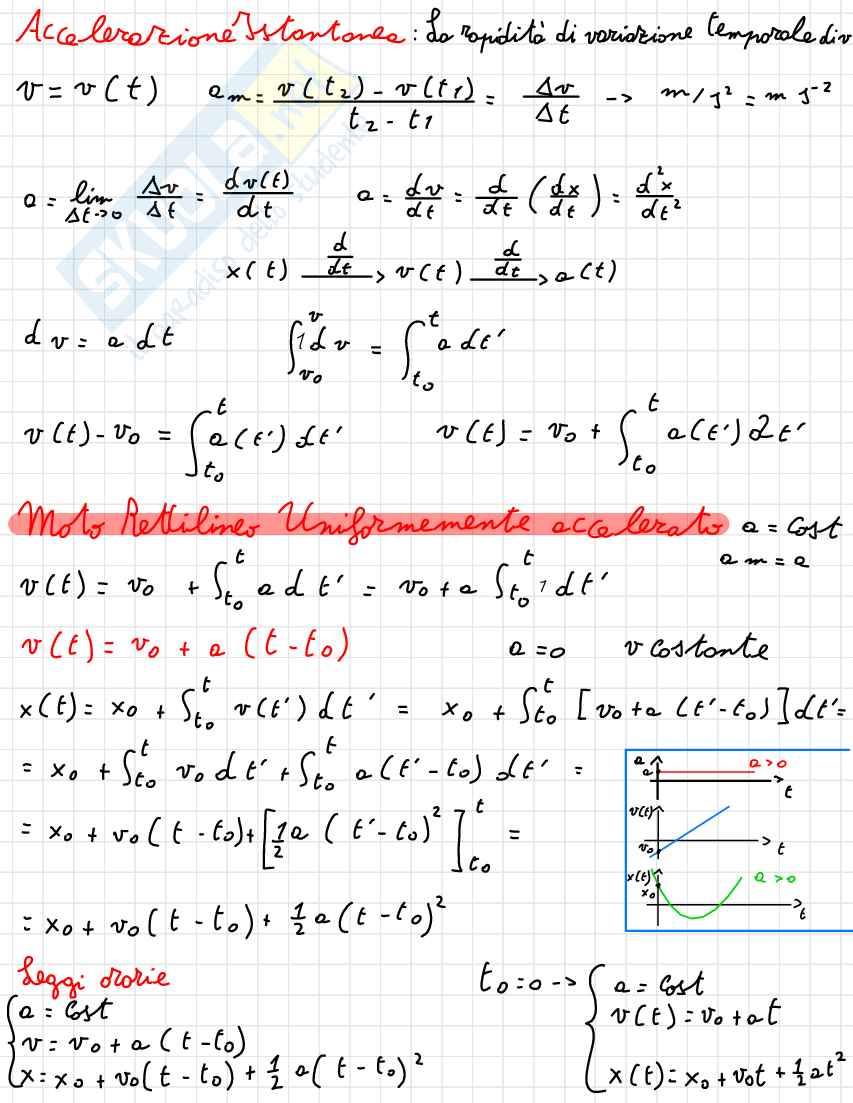 Accelerazione Istantanea : La rapidità di variazione temporale di v
v = v(t)   a m = v(t2) - v(t1) / t2 - t1 = Δv / Δt -> m/s² = m s⁻²
a = lim Δt->0 Δv/Δt = dv(t)/dt   a = dv/dt = d/dt (dx/dt) = d²x/dt²
x(t) d/dt -> v(t) d/dt -> a(t)
dv = a dt   ∫v0^v 1 dv = ∫t0^t a dt'
v(t) - v0 = ∫t0^t a(t') dt'   v(t) = v0 + ∫t0^t a(t') dt'
Moto Rettilineo Uniformemente accelerato a = cost
a m = a
v(t) = v0 + ∫t0^t a dt' = v0 + a ∫t0^t 1 dt'
v(t) = v0 + a (t - t0)   a = 0   v costante
x(t) = x0 + ∫t0^t v(t') dt' = x0 + ∫t0^t [v0 + a (t' - t0)] dt' =
= x0 + ∫t0^t v0 dt' + ∫t0^t a (t' - t0) dt' =
= x0 + v0 (t - t0) + [1/2 a (t' - t0)²]t0^t =
= x0 + v0 (t - t0) + 1/2 a (t - t0)²
a a a > 0 t
v(t) v0 t
x(t) x0 a > 0 t
Leggi orarie
a = cost
v = v0 + a (t - t0)
x = x0 + v0 (t - t0) + 1/2 a (t - t0)²
t0 = 0 -> a = cost
v(t) = v0 + at
x(t) = x0 + v0t + 1/2 at²
SKUOLA.net
il paradiso dello studente